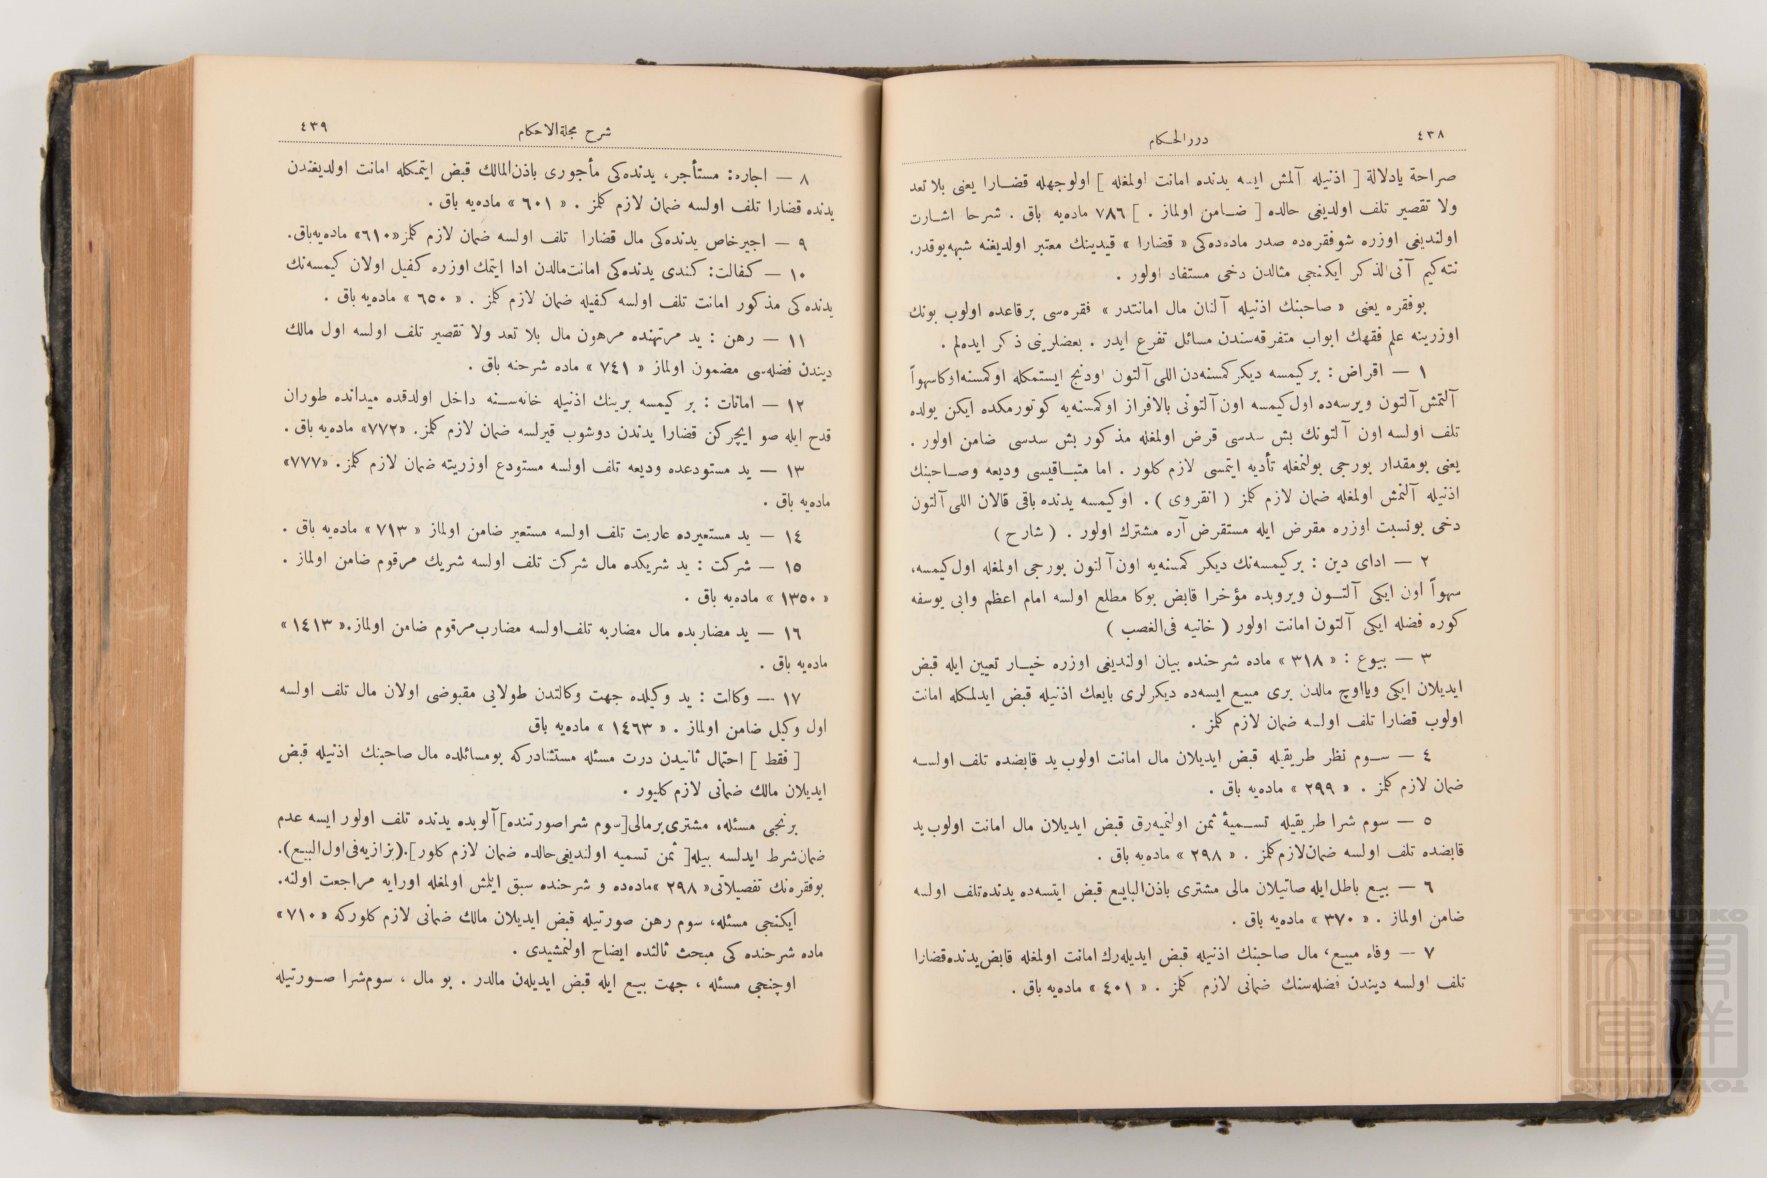 ٤٣٨
دررالحكام
صراحة يادلالة [ اذنيله آلمش ايسه يدنده امانت اولمغله ] اولوجهله قضارا يعنى بلا تعد
ولا تقصير تلف اولديغى حالده [ ضامن اولماز . ] ٧٨٦ ماده‌يه باق . شرحا اشارت
اولنديغى اوزره شوفقره‌ده صدر ماده‌ده‌كى « قضارا » قيدينك معتبر اولديغنه شبهه يوقدر.
نته‌كيم آتى الذكر ايكنجى مثالدن دخى مستفاد اولور .
بوفقره يعنى « صاحبنك اذنيله آلنان مال امانتدر » فقره‌سى برقاعده اولوب بونك
اوزرينه علم فقهك ابواب متفرقه‌سندن مسائل تفرع ايدر . بعضلرينى ذكر ايده‌لم .
١ — اقراض : بركيمسه ديكركمسنه‌دن اللى آلتون اودنج ايستمكله اوكمسنه اوكاسهواً
آلتمش آلتون ويرسه‌ده اول كيمسه اون آلتونى بالافراز اوكمسنه‌يه كوتورمكده ايكن يولده
تلف اولسه اون آلتونك بش سدسى قرض اولمغله مذكور بش سدسى ضامن اولور .
يعنى بومقدار بورجى بولنمغله تأديه ايتمسى لازم كلور . اما متباقيسى وديعه وصاحبنك
اذنيله آلنمش اولمغله ضمان لازم كلمز ( انقروى ) . اوكيمسه يدنده باقى قالان اللى آلتون
دخى بونسبت اوزره مقرض ايله مستقرض آره مشترك اولور . ( شارح )
٢ — اداى دين : بركيمسه‌نك ديكر كمسنه‌يه اون آلتون بورجى اولمغله اول كيمسه،
سهواً اون ايكى آلتون ويروبده مؤخرا قابض بوكا مطلع اولسه امام اعظم وابى يوسفه
كوره فضله ايكى آلتون امانت اولور ( خانيه فى‌الغصب )
٣ — بيوع : « ٣١٨ » ماده شرحنده بيان اولنديغى اوزره خيار تعيين ايله قبض
ايديلان ايكى ويااوچ مالدن برى مبيع ايسه‌ده ديكرلرى بايعك اذنيله قبض ايدلمكله امانت
اولوب قضارا تلف اولسه ضمان لازم كلمز .
٤ — سوم نظر طريقيله قبض ايديلان مال امانت اولوب يد قابضده تلف اولسه
ضمان لازم كلمز . « ٢٩٩ » ماده‌يه باق .
٥ — سوم شرا طريقيله تسمية ثمن اولنميه‌رق قبض ايديلان مال امانت اولوب يد
قابضده تلف اولسه ضمان لازم كلمز . « ٢٩٨ » ماده‌يه باق .
٦ — بيع باطل ايله صاتيلان مالى مشترى باذن البايع قبض ايتسه‌ده يدنده تلف اولسه
ضامن اولماز . « ٣٧٠ » ماده‌يه باق .
٧ — وفاء مبيع، مال صاحبنك اذنيله قبض ايديله‌رك امانت اولمغله قابض يدنده قضارا
تلف اولسه ديندن فضله‌سنك ضمانى لازم كلمز . « ٤٠١ » ماده‌يه باق .
شرح مجلة الاحكام
٤٣٩
٨ — اجاره: مستأجر، يدنده‌كى مأجورى باذن‌المالك قبض ايتمكله امانت اولديغندن
يدنده قضارا تلف اولسه ضمان لازم كلمز . « ٦٠١ » ماده‌يه باق .
٩ — اجير خاص يدنده‌كى مال قضارا تلف اولسه ضمان لازم كلمز «٦١٠» ماده‌يه باق.
١٠ — كفالت: كندى يدنده‌كى امانت مالدن ادا ايتمك اوزره كفيل اولان كيمسه‌نك
يدنده‌كى مذكور امانت تلف اولسه كفيله ضمان لازم كلمز . « ٦٥٠ » ماده‌يه باق .
١١ — رهن : يد مرتهنده مرهون مال بلا تعد ولا تقصير تلف اولسه اول مالك
ديندن فضله‌سى مضمون اولماز « ٧٤١ » ماده شرحنه باق .
١٢ — امانات : بر كيمسه برينك اذنيله خانه‌سنه داخل اولدقده ميدانده طوران
قدح ايله صو ايچركن قضارا يدندن دوشوب قيرلسه ضمان لازم كلمز. «٧٧٢» ماده‌يه باق .
١٣ — يد مستودعده وديعه تلف اولسه مستودع اوزرينه ضمان لازم كلمز. «٧٧٧»
ماده‌يه باق .
١٤ — يد مستعيرده عاريت تلف اولسه مستعير ضامن اولماز « ٧١٣ » ماده‌يه باق .
١٥ — شركت : يد شريكده مال شركت تلف اولسه شريك مرقوم ضامن اولماز .
« ١٣٥٠ » ماده‌يه باق .
١٦ — يد مضاربده مال مضاربه تلف اولسه مضارب مرقوم ضامن اولماز. « ١٤١٣ »
ماده‌يه باق .
١٧ — وكالت : يد وكيلده جهت وكالتدن طولايى مقبوضى اولان مال تلف اولسه
اول وكيل ضامن اولماز . « ١٤٦٣ » ماده‌يه باق
[ فقط ] احتمال ثانيدن درت مسئله مستثنادركه بومسائلده مال صاحبنك اذنيله قبض
ايديلان مالك ضمانى لازم كليور .
برنجى مسئله، مشترى برمالى [سوم شراصورتنده] آلوبده يدنده تلف اولور ايسه عدم
ضمان شرط ايدلسه بيله [ ثمن تسميه اولنديغى حالده ضمان لازم كلور ].(بزازيه فى اول البيع).
بوفقره‌نك تفصيلاتى « ٢٩٨ » ماده‌ده و شرحنده سبق ايتمش اولمغله اورايه مراجعت اولنه.
ايكنجى مسئله، سوم رهن صورتيله قبض ايديلان مالك ضمانى لازم كلوركه « ٧١٠ »
ماده شرحنده كى مبحث ثالثده ايضاح اولنمشيدى .
اوچنجى مسئله ، جهت بيع ايله قبض ايديلەن مالدر . بو مال ، سوم شرا صورتيله
TOYO BUNKO